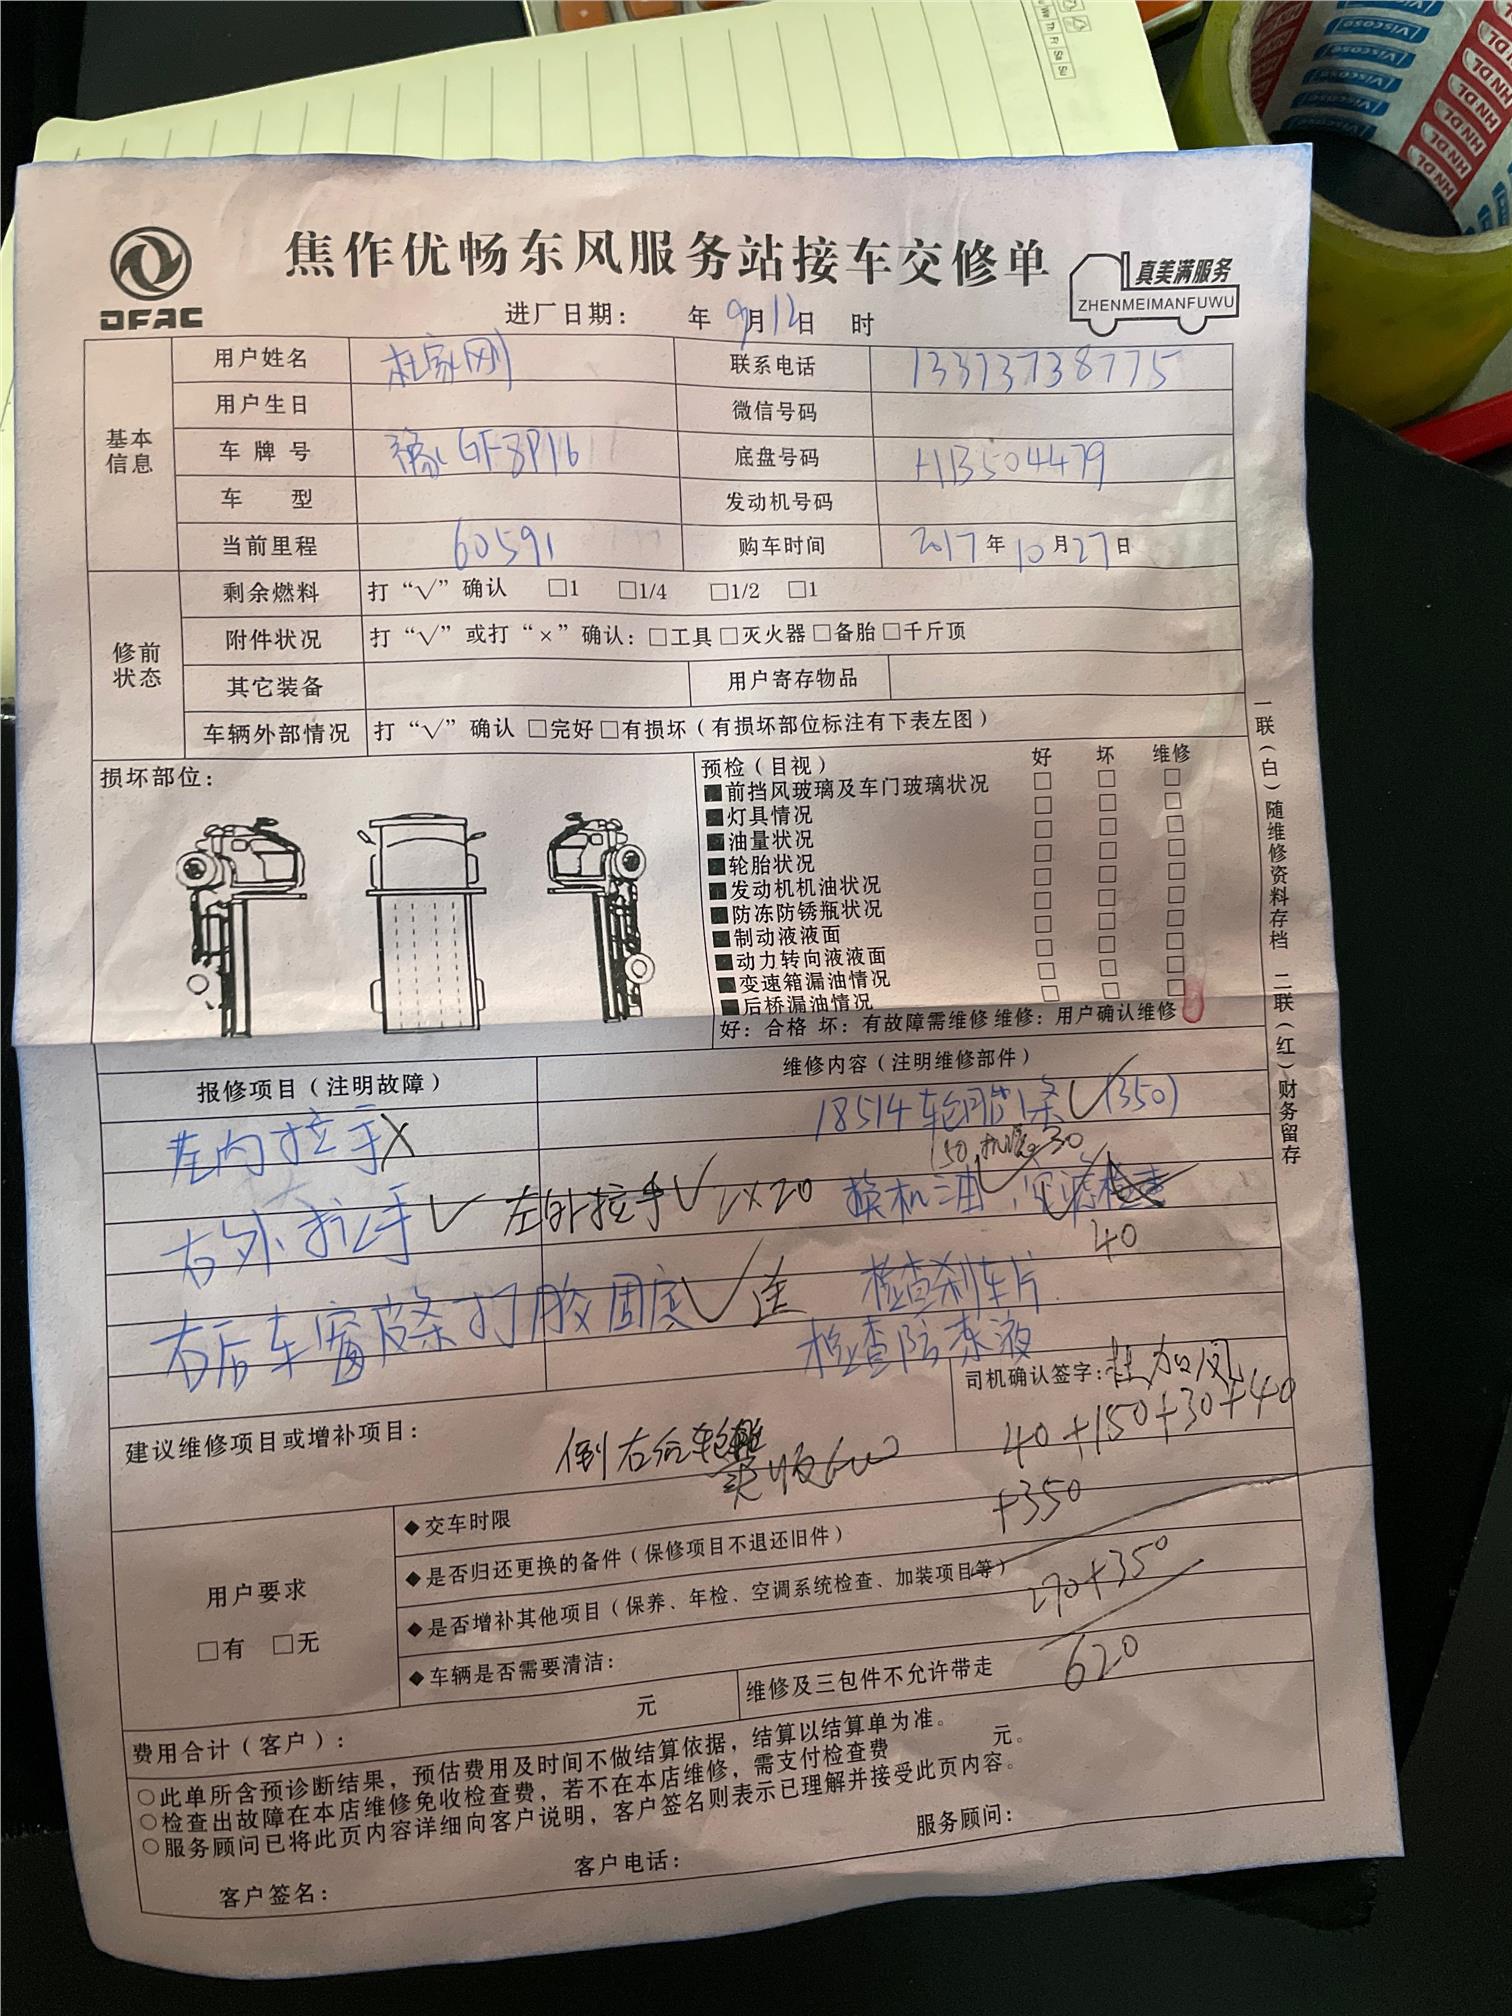 焦作优畅东风服务站接车交修单
DFAC
真美满服务
ZHENMEIMANFUWU
进厂日期： 年 9月12日 时
基本信息
用户姓名 杜家刚 联系电话 13373738775
用户生日 微信号码
车牌号 豫GF8P16 底盘号码 HB504479
车 型 发动机号码
当前里程 60591 购车时间 2017年10月27日
修前状态
剩余燃料 打“√”确认 □1 □1/4 □1/2 □1
附件状况 打“√”或打“×”确认：□工具□灭火器□备胎□千斤顶
其它装备 用户寄存物品
车辆外部情况 打“√”确认 □完好□有损坏（有损坏部位标注有下表左图）
损坏部位：
预检（目视） 好 坏 维修
■前挡风玻璃及车门玻璃状况 □ □ □
■灯具情况 □ □ □
■油量状况 □ □ □
■轮胎状况 □ □ □
■发动机机油状况 □ □ □
■防冻防锈瓶状况 □ □ □
■制动液液面 □ □ □
■动力转向液液面 □ □ □
■变速箱漏油情况 □ □ □
■后桥漏油情况 □ □ □
好：合格 坏：有故障需维修 维修：用户确认维修
一联（白）随维修资料存档 二联（红）财务留存
报修项目（注明故障） 维修内容（注明维修部件）
左内拉手X 18514轮胎1条√(350)
150 机滤30
右外拉手√ 左外拉手√2X20 换机油√
40
右后车窗皮条打胶固定√ 检查刹车片
检查防冻液
司机确认签字：
建议维修项目或增补项目： 倒右后轮胎
40+150+30+40
+350
270+350
620
用户要求
□有 □无
◆交车时限
◆是否归还更换的备件（保修项目不退还旧件）
◆是否增补其他项目（保养、年检、空调系统检查、加装项目等）
◆车辆是否需要清洁：
费用合计（客户）： 元 维修及三包件不允许带走
○此单所含预诊断结果，预估费用及时间不做结算依据，结算以结算单为准。
○检查出故障在本店维修免收检查费，若不在本店维修，需支付检查费 元。
○服务顾问已将此页内容详细向客户说明，客户签名则表示已理解并接受此页内容。
客户签名： 客户电话： 服务顾问：
VISCOSE
HNDL